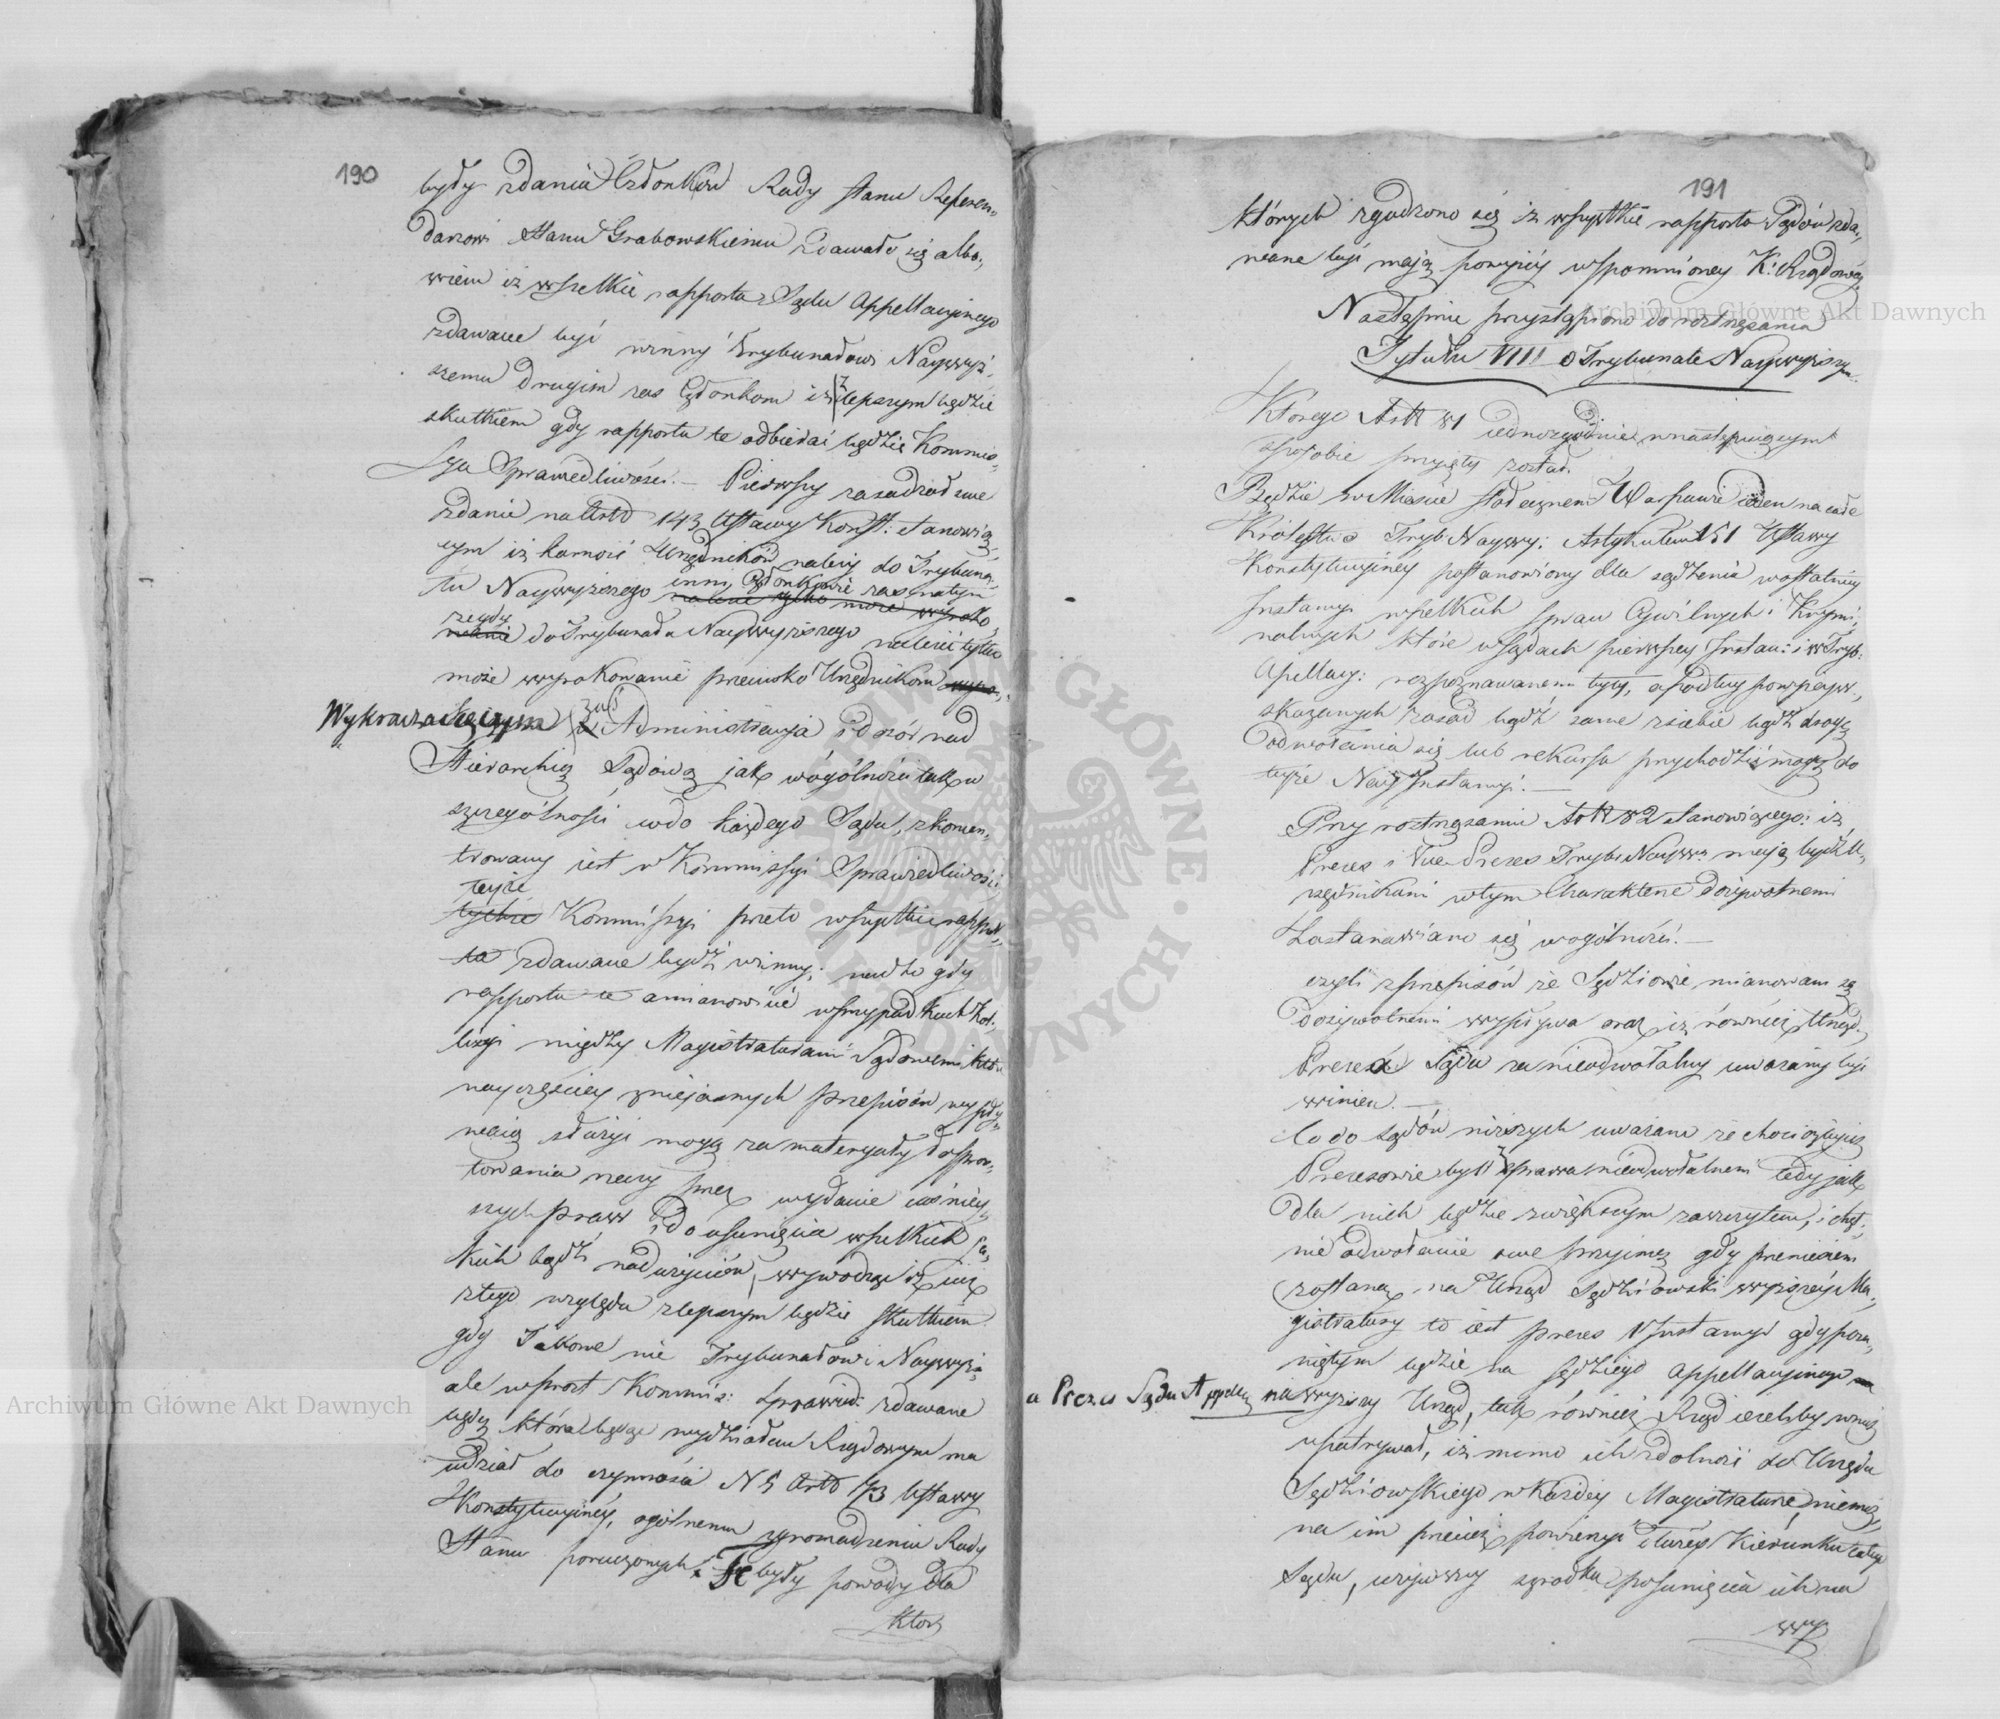 190
były zdania Członków Rady Stanu Referen-
darzowi Stanu Grabowskiemu zdawało się albo-
wiem iż wszelkie rapporta Sądu Appellacyinego
zdawane być winny Trybunałowi Naywyż-
szemu drugim zaś Członkom iż z lepszym będzie
skutkiem gdy rapporta te odbierać będzie Kommis-
sya Sprawiedliwości. — Pierwszy zasadzał swe
zdanie na Artd 143 Ustawy Konst: stanowią-
cym iż karność Urzędników należy do Trybuna-
łu Naywyższego inni Członkowie zaś na tym
rzędy do Trybunału Naywyższego należeć tylko
może wyrokowanie przeciwko Urzędnikom
Wykraczaiącym zaś Administracja i dozór nad
Hierarchią Sądową jak w ogólności tak w
szczególności co do każdego Sądu, skoncen-
trowany iest w Kommissyi Sprawiedliwości
teyże
tychże Kommissyi przeto wszystkie rappor-
ta zdawane bydź winny; nadto gdy
rapporta te a mianowicie w przypadkach Kol-
lizyi między Magistraturami Sądowemi które
nayczęściey z niejasnych przepisów wypły-
waią służyć mogą za materyały do spros-
towania rzeczy przez wydanie iaśniey-
szych praw i do usunięcia wszelkich ja-
kich bądź nadużyciów, wywodzą iż iuż
z tego względu z lepszym będzie skutkiem
gdy Takowe nie Trybunałowi Naywyż:
ale wprost Kommis: Sprawied: zdawane
będą która będąc wydziałem Rządowym ma
udział do czynności N 5 Artd 73 Ustawy
Konstytucyiney, ogólnemu zgromadzeniu Rady
Stanu poruczonych. Te były powody dla
któr
191
których zgodzono się iż wszystkie rapporta Sądów zda-
wane być mają powyżey wspomnioney K: Rządowey
Następnie przystąpiono do roztrząsania
Tytułu VIII o Trybunale Naywyższym.
Którego Artt 81 iednozgodnie w następuiącym
sposobie przyięty został.
Będzie w Mieście stołecznem Warszawie ieden na całe
Królestwo Tryb Naywy: Artykułem 151 Ustawy
Konstytucyiney postanowiony dla sądzenia w ostatniey
Instancyi wszelkich spraw Cywilnych i Krymi-
nalnych które w Sądach pierwszey Instan: i w Tryb:
Apellacy: rozpoznawanemi były, a podług powyżey w-
skazanych zasad bądź same z siebie bądź drogą
odwołania się lub rekursu przychodzić mogą do
teyże Nay: Instancyi. —
Przy roztrząsaniu Artt 82 Stanowiącego: iż
Prezes i Vice Prezes Tryb: Naywyż: mają bydź U-
rzędnikami w tym Charakterze dożywotnemi
Zastanawiano się w ogólności. —
czyli z przepisów że Sędziowie mianowani są
dożywotnemi wypływa oraz iż również Urząd
Prezesa Sądu za nieodwołalny uważany być
winien. —
Co do Sądów niższych uważano że chociażby ich
Prezesowie byli z prawa nieodwołalnemi tedy jak
dla nich będzie zwiększym zaszczytem, i chęt-
nie odwołanie swe przyimą gdy przeniesieni
zostaną na Urząd Sędziowski wyższey Ma-
gistratury to iest Prezes I Instancyi gdy posu-
niętym będzie na Sędziego Appellacyinego
a Prezes Sądu Appella: na wyższy Urząd, tak również Rząd ieżeliby w nich
upatrywał, iż mimo ich zdolności do Urzędu
Sędziowskiego w każdey Magistraturze, niemoż-
na im przecież powierzyć Steru i Kierunku całego
Sądu, użyie
środka posunięcia ich na
wyż
Archiwum Główne Akt Dawnych
Archiwum Główne Akt Dawnych
ARCHIWUM GŁÓWNE · AKT DAWNYCH ·